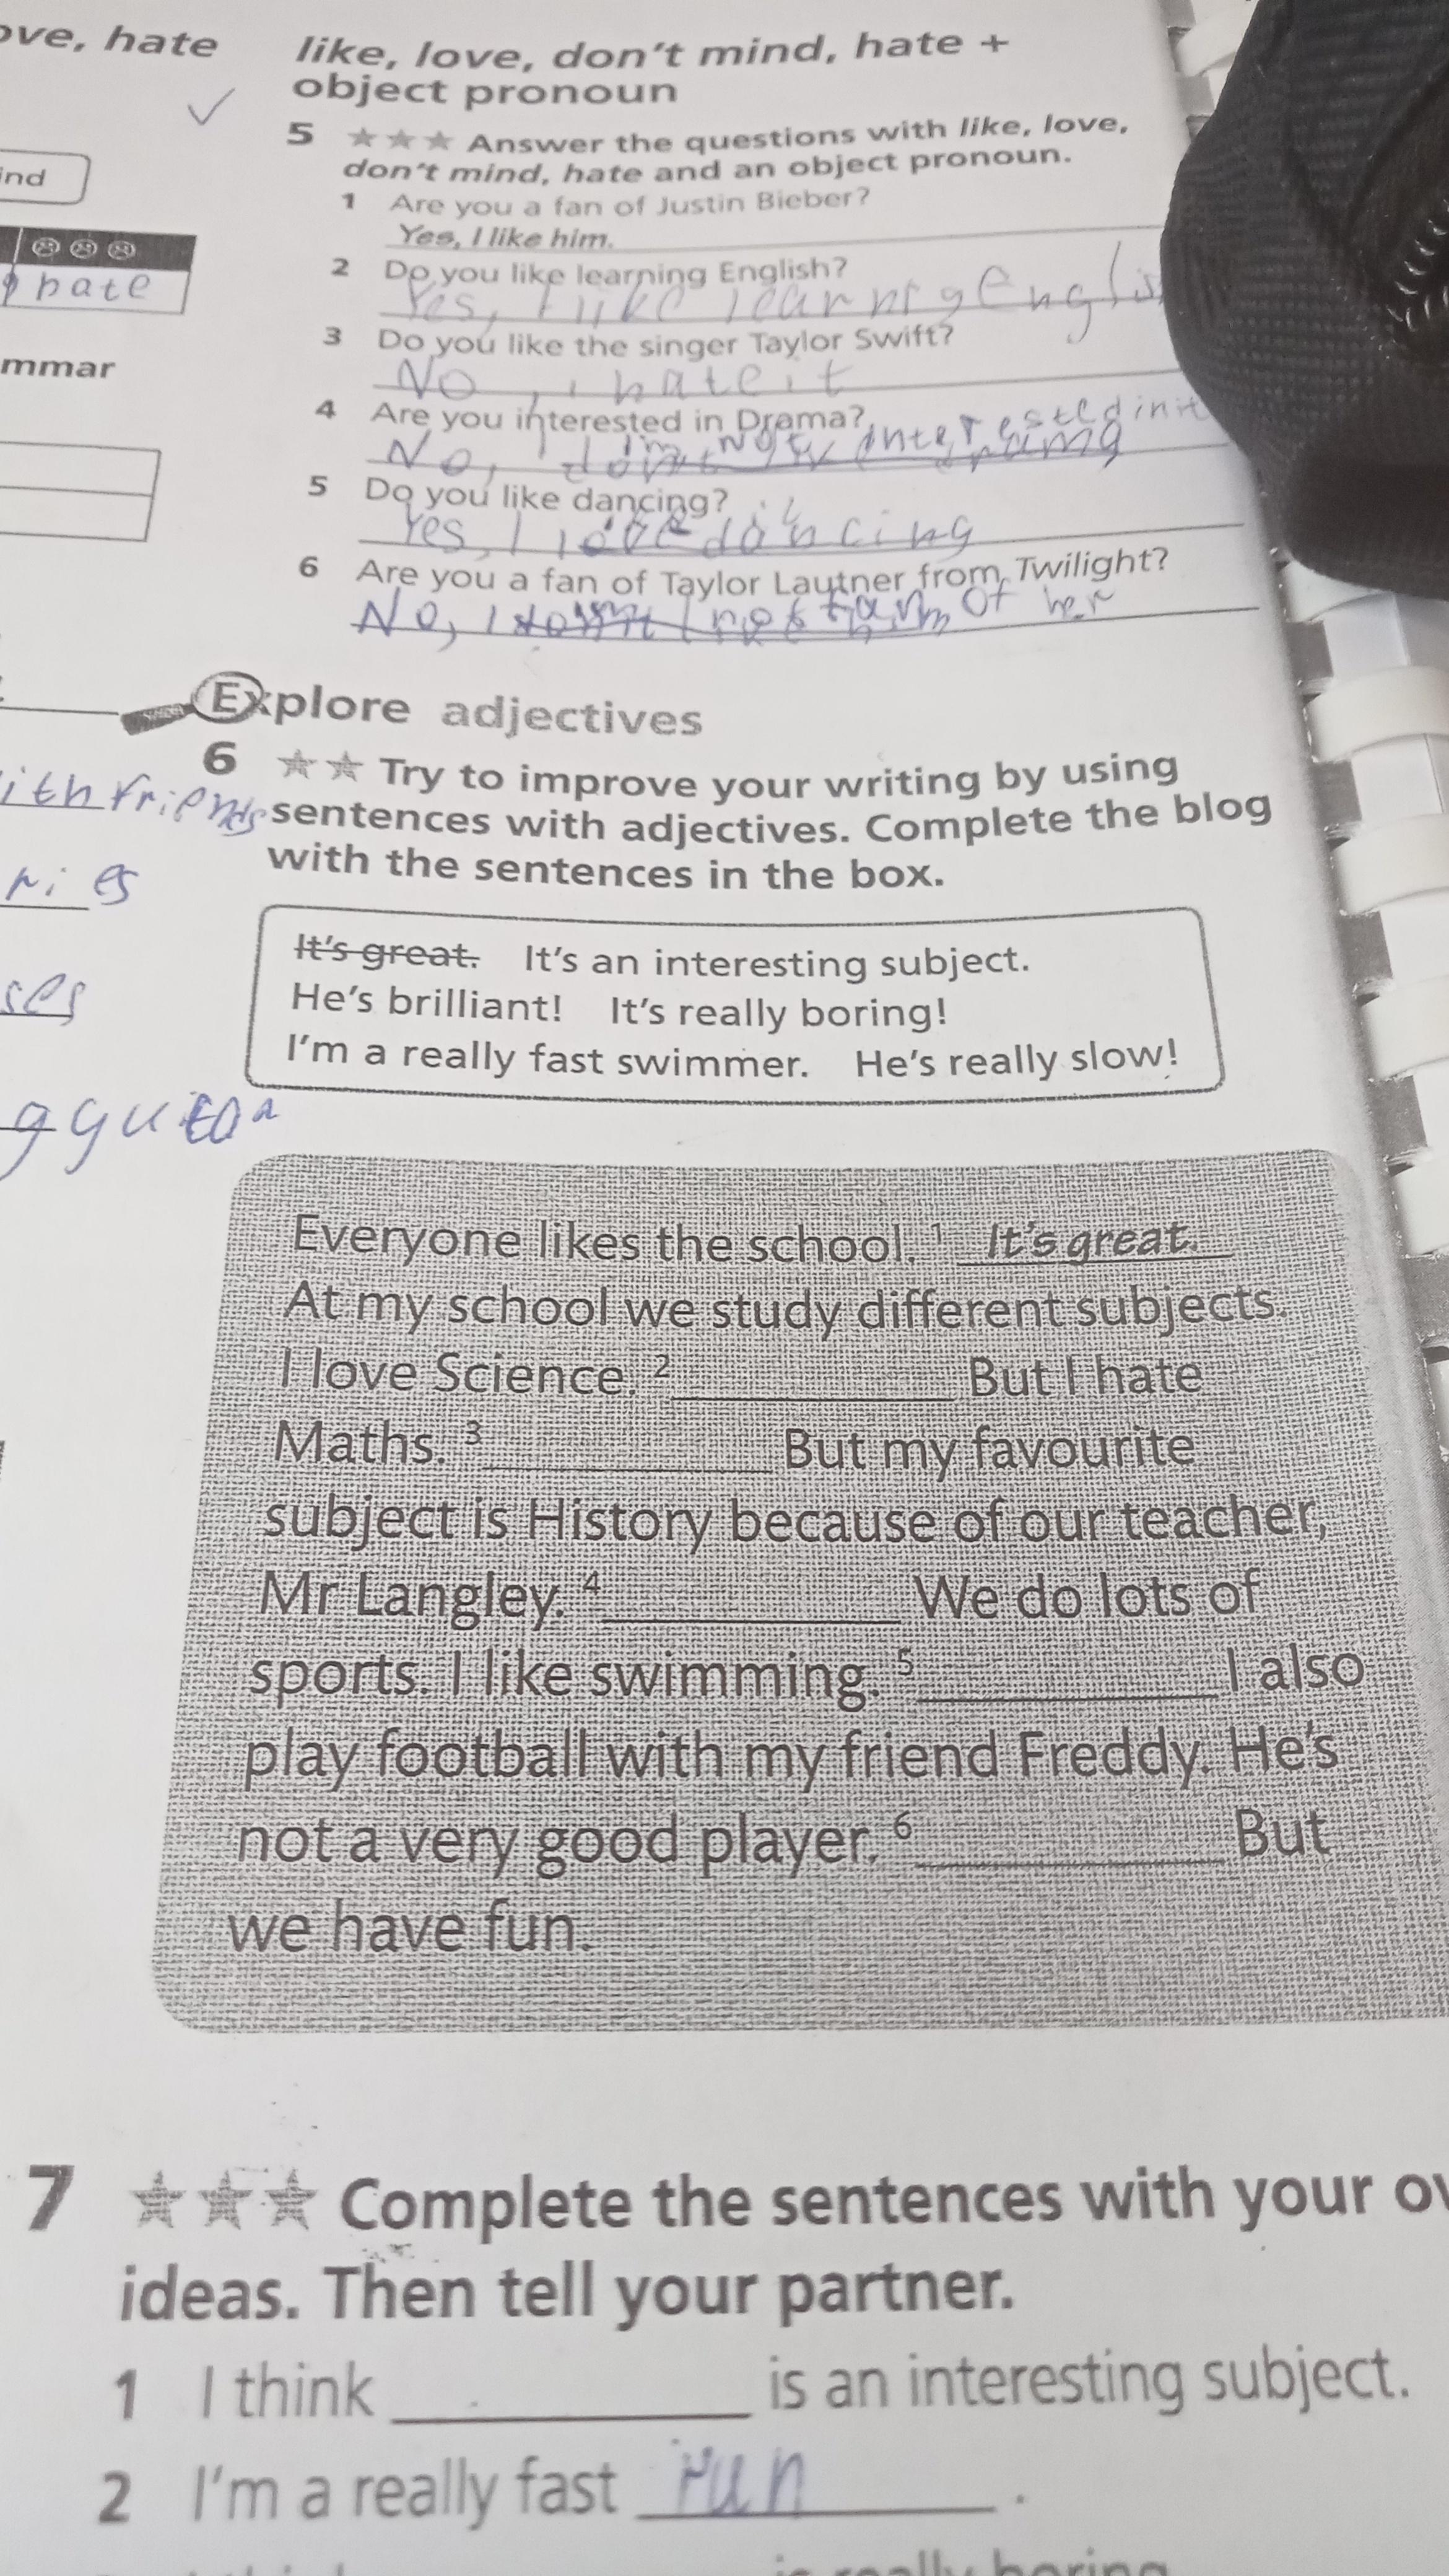 ove, hate
ind
hate
mmar
ith friends
ries
ses
gguton
like, love, don't mind, hate +
object pronoun
5 ★★★ Answer the questions with like, love,
don't mind, hate and an object pronoun.
1 Are you a fan of Justin Bieber?
Yes, I like him.
2 Do you like learning English?
Yes, I like learning englis
3 Do you like the singer Taylor Swift?
No, I hate it
4 Are you interested in Drama?
No, I'm not interested in it
5 Do you like dancing?
Yes, I love dancing
6 Are you a fan of Taylor Lautner from Twilight?
No, I not fan of her
Explore adjectives
6 ★★ Try to improve your writing by using
sentences with adjectives. Complete the blog
with the sentences in the box.
It's great. It's an interesting subject.
He's brilliant! It's really boring!
I'm a really fast swimmer. He's really slow!
Everyone likes the school. 1 It's great.
At my school we study different subjects.
I love Science. 2 But I hate
Maths. 3 But my favourite
subject is History because of our teacher,
Mr Langley. 4 We do lots of
sports. I like swimming. 5 I also
play football with my friend Freddy. He's
not a very good player. 6 But
we have fun.
7 ★★★ Complete the sentences with your ow
ideas. Then tell your partner.
1 I think is an interesting subject.
2 I'm a really fast run .
is really boring